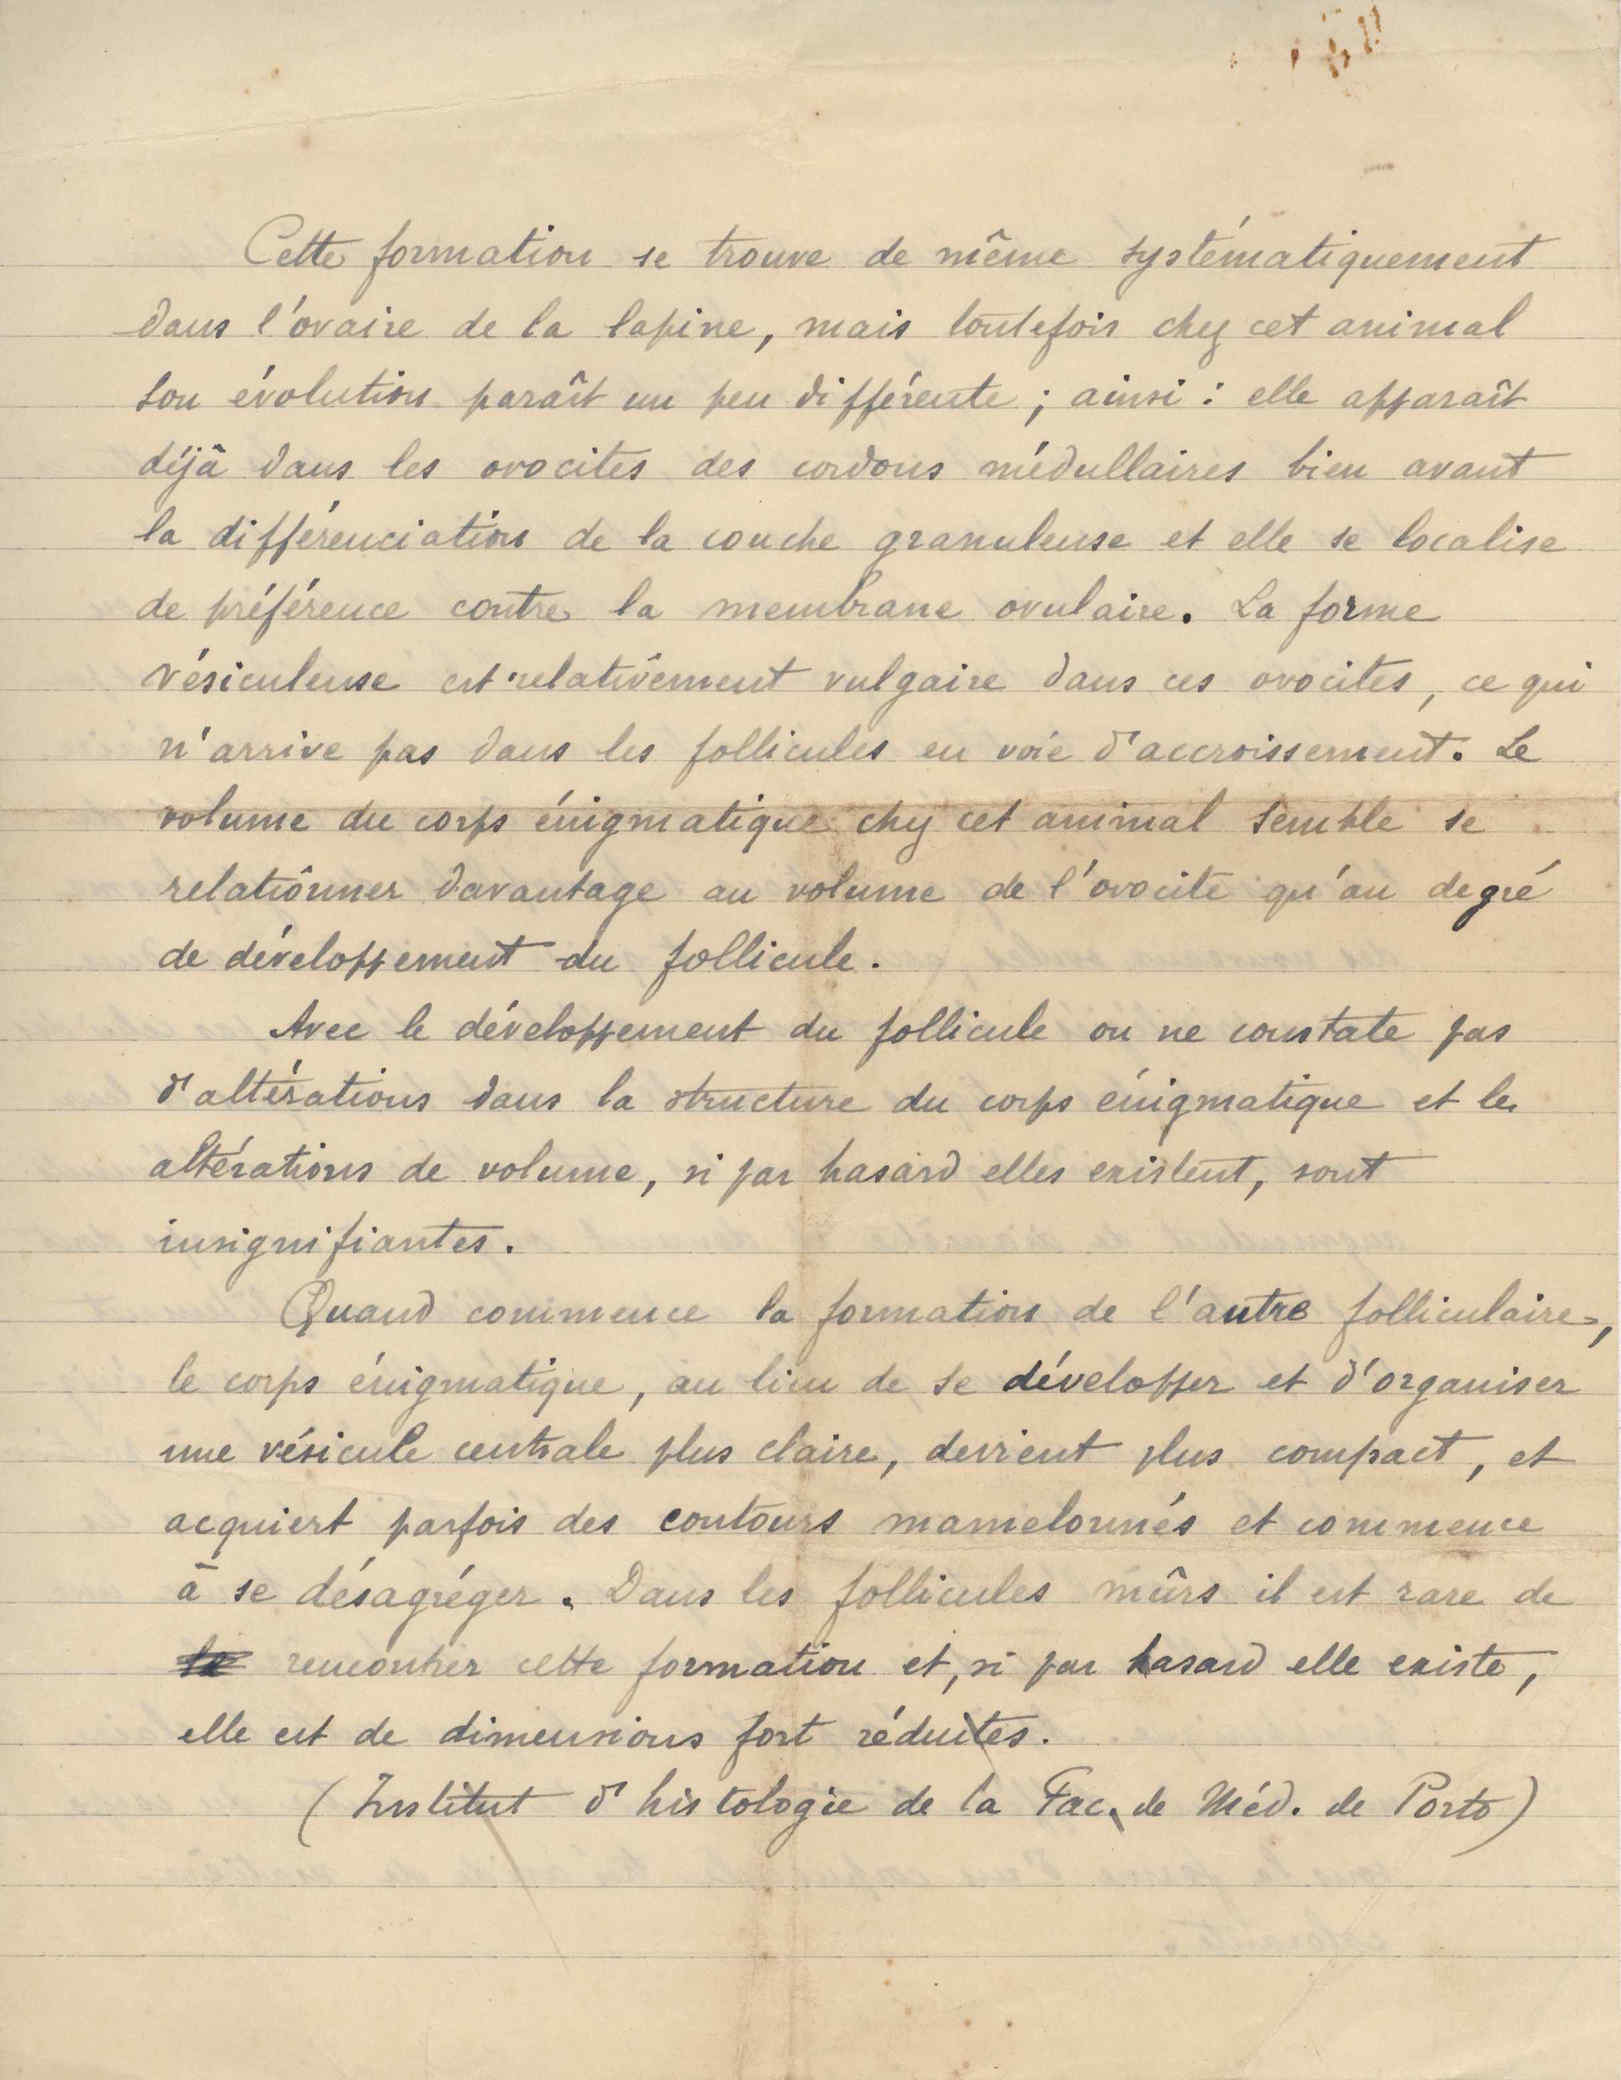 Cette formation se trouve de même systématiquement
dans l'ovaire de la lapine, mais toutefois chez cet animal
son évolution paraît un peu différente ; ainsi : elle apparaît
déjà dans les ovocites des cordons médullaires bien avant
la différenciation de la couche granuleuse et elle se localise
de préférence contre la membrane ovulaire. La forme
vésiculeuse est relativement vulgaire dans ces ovocites, ce qui
n'arrive pas dans les follicules en voie d'accroissement. Le
volume du corps énigmatique chez cet animal semble se
relationner davantage au volume de l'ovocite qu'au degré
de développement du follicule.
Avec le développement du follicule on ne constate pas
d'altérations dans la structure du corps énigmatique et les
altérations de volume, si par hasard elles existent, sont
insignifiantes.
Quand commence la formation de l'autre folliculaire,
le corps énigmatique, au lieu de se développer et d'organiser
une vésicule centrale plus claire, devient plus compact, et
acquiert parfois des contours mamelonnés et commence
à se désagréger. Dans les follicules mûrs il est rare de
rencontrer cette formation et, si par hasard elle existe,
elle est de dimensions fort réduites.
(Institut d'histologie de la Fac. de Méd. de Porto)